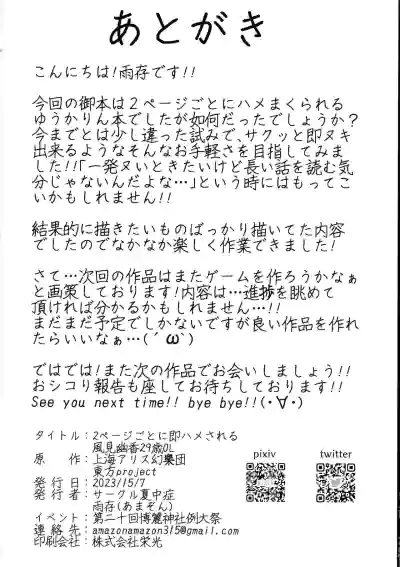 あとがき
こんにちは!雨存です!!
今回の御本は2ページごとにハメまくられる
ゆうかりん本でしたが如何だったでしょうか?
今までとは少し違った試みで、サクッと即ヌキ
出来るようなそんなお手軽さを目指してみま
した!!「一発ヌいときたいけど長い話を読む気
分じゃないんだよな…」という時にはもってこ
いかもしれません!!
結果的に描きたいものばっかり描いてた内容
でしたのでなかなか楽しく作業できました!
さて…次回の作品はまたゲームを作ろうかなぁ
と画策しております!内容は…進捗を眺めて
頂ければ分かるかもしれません…!!
まだまだ予定でしかないですが良い作品を作れ
たらいいなぁ…(´ω`)
ではでは!また次の作品でお会いしましょう!!
おシコり報告も座してお待ちしております!!
See you next time!! bye bye!!(・∀・)
タイトル:2ページごとに即ハメされる
風見幽香29歳OL
原作:上海アリス幻樂団
東方project
発行日:2023/5/7
発行者:サークル夏中症
雨存(あまぞん)
イベント:第二十回博麗神社例大祭
連絡先:amazonamazon315@gmail.com
印刷会社:株式会社栄光
pixiv
twitter